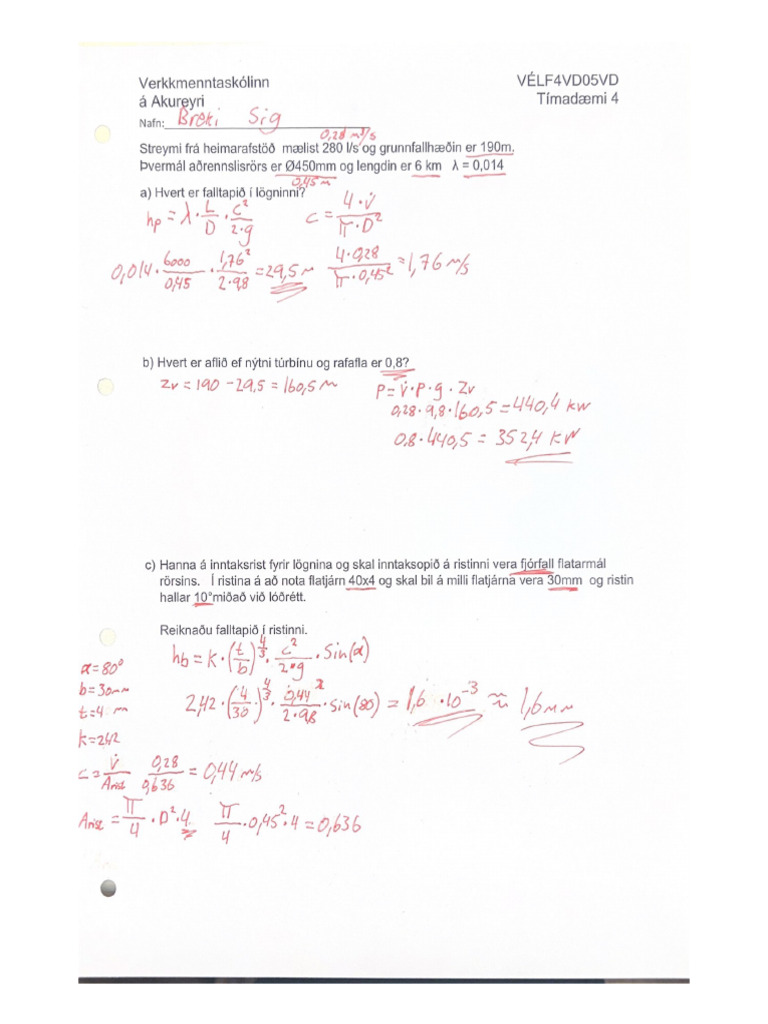 Verkkmenntaskólinn VÉLF4VD05VD
á Akureyri Tímadæmi 4
Nafn: Breki Sig
0,28 m³/s
Streymi frá heimarafstöð mælist 280 l/s og grunnfallhæðin er 190m.
Þvermál aðrennslisrörs er Ø450mm og lengdin er 6 km λ = 0,014
0,45 m
a) Hvert er falltapið í lögninni?
hp = λ · L/D · c²/2·g c = 4·V̇/π·D²
0,014 · 6000/0,45 · 1,76²/2·9,8 = 29,5 m 4·0,28/π·0,45² = 1,76 m/s
b) Hvert er aflið ef nýtni túrbínu og rafafla er 0,8?
Zv = 190 - 29,5 = 160,5 m P = V̇·ρ·g·Zv
0,28 · 9,8 · 160,5 = 440,4 kW
0.8 · 440,5 = 352,4 kW
c) Hanna á inntaksrist fyrir lögnina og skal inntaksopið á ristinni vera fjórfall flatarmál
rörsins. Í ristina á að nota flatjárn 40x4 og skal bil á milli flatjárna vera 30mm og ristin
hallar 10°miðað við lóðrétt.
Reiknaðu falltapið í ristinni.
hb = k · (t/b)^4/3 · c²/2·g · Sin(α)
α = 80°
b = 30mm
t = 4 m
k = 2,42
2,42 · (4/30)^4/3 · 0,44²/2·9,8 · sin(80) = 1,6 · 10⁻³ ≈ 1,6 mm
c = V̇/Arist 0,28/0,636 = 0,44 m/s
Arist = π/4 · D² · 4 π/4 · 0,45² · 4 = 0,636